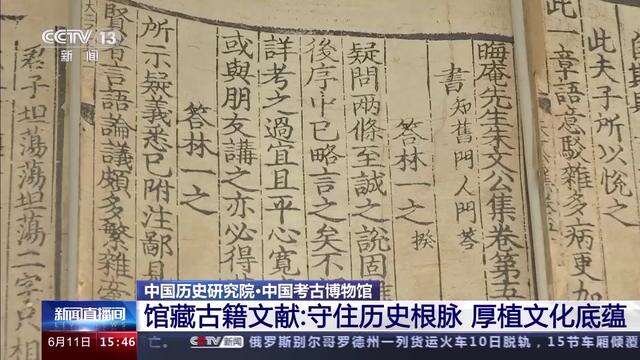 CCTV 13
新闻
此夫子所以悦之
一章語意駁雜多病更
晦庵先生朱文公集卷第五
書 知舊門人問答
答林一之 揆
疑問兩條至誠之說固
後序中已略言之矣不
詳考之過宜且平心寬
或與朋友講之亦必得
答林一之
所示疑義悉已附注鄙
賢者言語論議頗多繁雜
君子坦荡荡坦荡二字只相
中国历史研究院·中国考古博物馆
新闻直播间
馆藏古籍文献:守住历史根脉 厚植文化底蕴
6月11日 15:46
CCTV 13 新闻 俄罗斯别尔哥罗德州一列货运火车10日脱轨，15节车厢倾覆